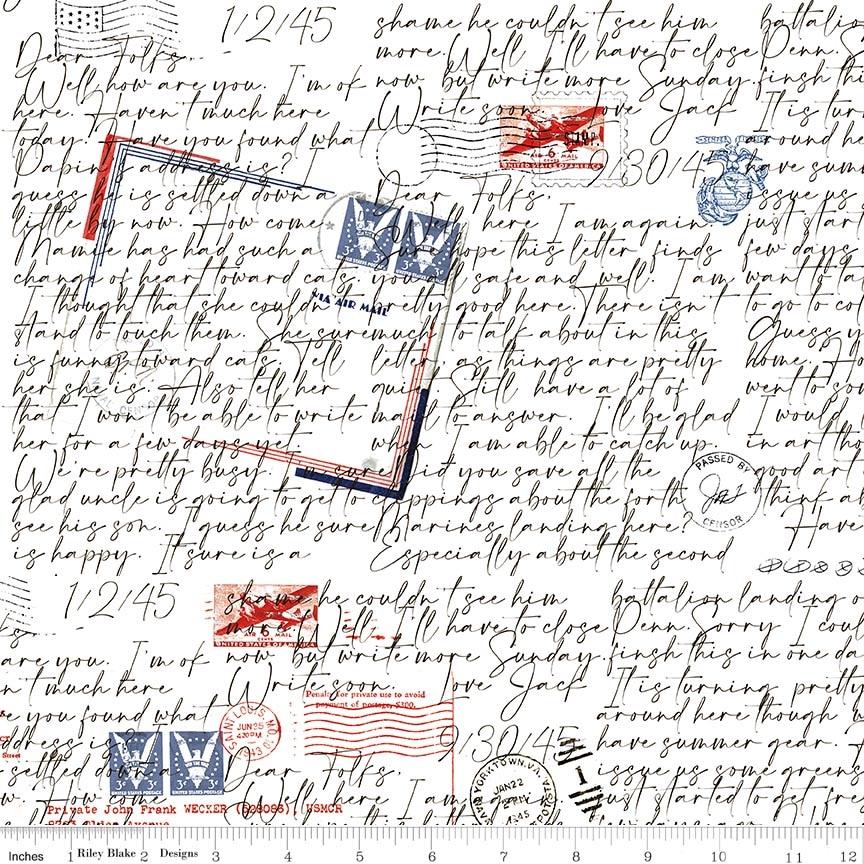 1/2/45
Dear Folks,
Well how are you. I'm ok
here. Haven't much here
today. Have you found what
Dapin address is?
guess he is settled down a
little by now. How come
Mamie has had such a
change of heart toward cats,
I thought that she couldn't
stand to touch them. She sure
is funny toward cats. Tell
her she is. Also tell her
that I won't be able to write
her for a few days yet.
We're pretty busy. I'm sure
glad uncle is going to get to
see his son. I guess he sure
is happy. It sure is a
shame he couldn't see him
more. Well I'll have to close
now but write more Sunday.
Write soon. Love Jack
9/30/45
Dear Folks,
Well here I am again.
Sure hope this letter finds
you all safe and well. I am
pretty good here. There isn't
much to talk about in this
letter as things are pretty
quiet. Still have a lot of
mail to answer. I'll be glad
when I am able to catch up.
Did you save all the
clippings about the forth
Marines landing here?
Especially about the second
battalion
Penn. S
finish th
It is tur
around he
have sum
issue us
just star
few days.
want to ta
to go to co
Guess y
home. A
went to so
I would
in art th
good art
think a
Have
AIR 6 MAIL
CENTS
UNITED STATES OF AMERICA
VIA AIR MAIL
UNITED STATES POSTAGE
3¢
PASSED BY
CENSOR
1/2/45
are you. I'm ok
n't much here
e you found what
ddress is?
settled down a
w. How come
shame he couldn't see him
more. Well I'll have to close
now but write more Sunday.
Write soon. Love Jack
9/30/45
Dear Folks,
Well here I am again.
battalion landing o
Penn. Sorry I cou
finish this in one da
It is turning pretty
around here though
have summer gear.
issue us some greens
just started to get fre
AIR 6 MAIL
CENTS
UNITED STATES OF AMERICA
Penalty for private use to avoid
payment of postage, $300.
SAINT LOUIS, MO.
JUN 25
4 30 PM
1943
UNITED STATES POSTAGE
3¢
YORKTOWN, VA.
JAN 22
1945
Private John Frank WECKER (528085), USMCR
Inches 1 2 3 4 5 6 7 8 9 10 11 12
Riley Blake Designs